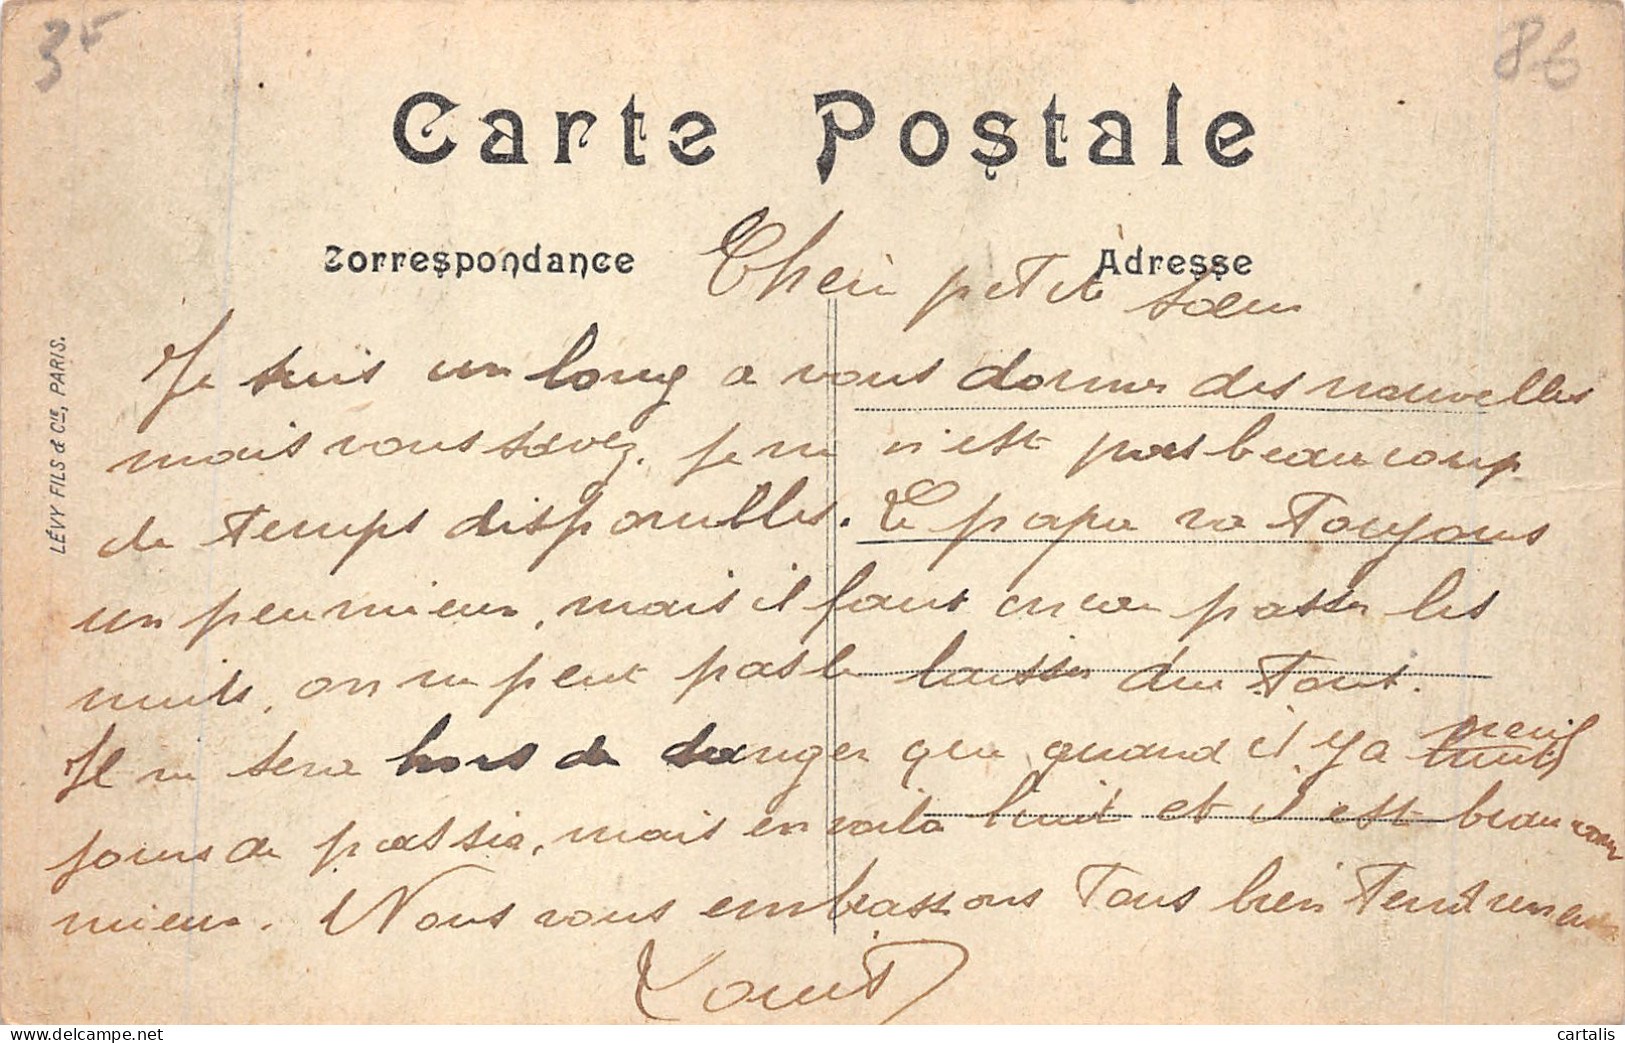 3F
86
Carte Postale
Correspondance
Adresse
Cheri petite sœur
Je suis un long a vous donner des nouvelles
mais vous savez, je ne n'est pas beaucoup
de temps disponibles. Le papa va toujours
un peu mieux, mais il faut encore passer les
nuits, on ne peut pas le laisser du tout.
Il ne sera hors de danger que quand il y a neuf
jours de passée, mais en voilà huit et il est beaucoup
mieux. Nous vous embrassons tous bien tendrement
LÉVY FILS & Cie, PARIS.
cartalis